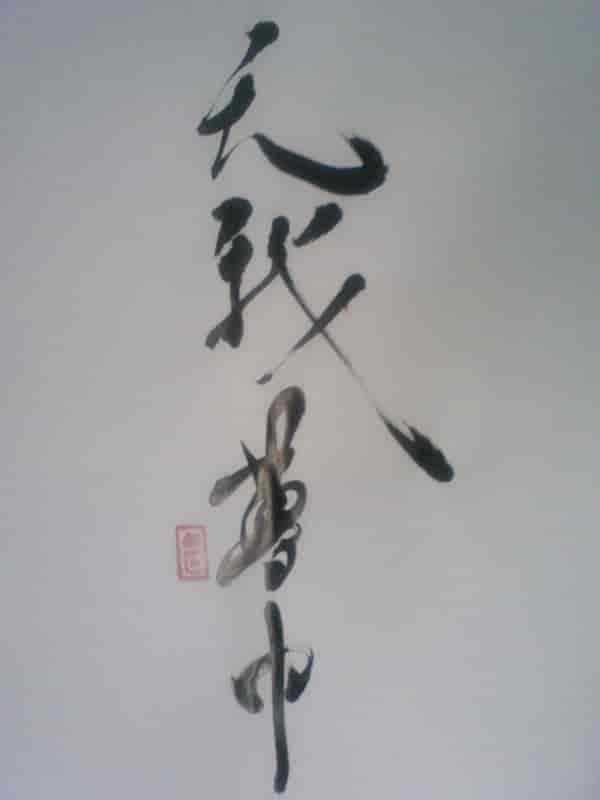 无我夢中